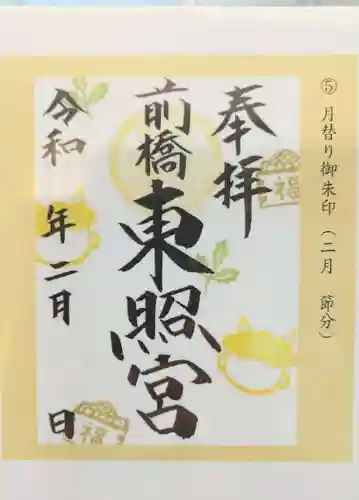 ⑤ 月替り御朱印（二月　節分）
奉拝
福
前橋
東照宮
令和　年二月　日
福